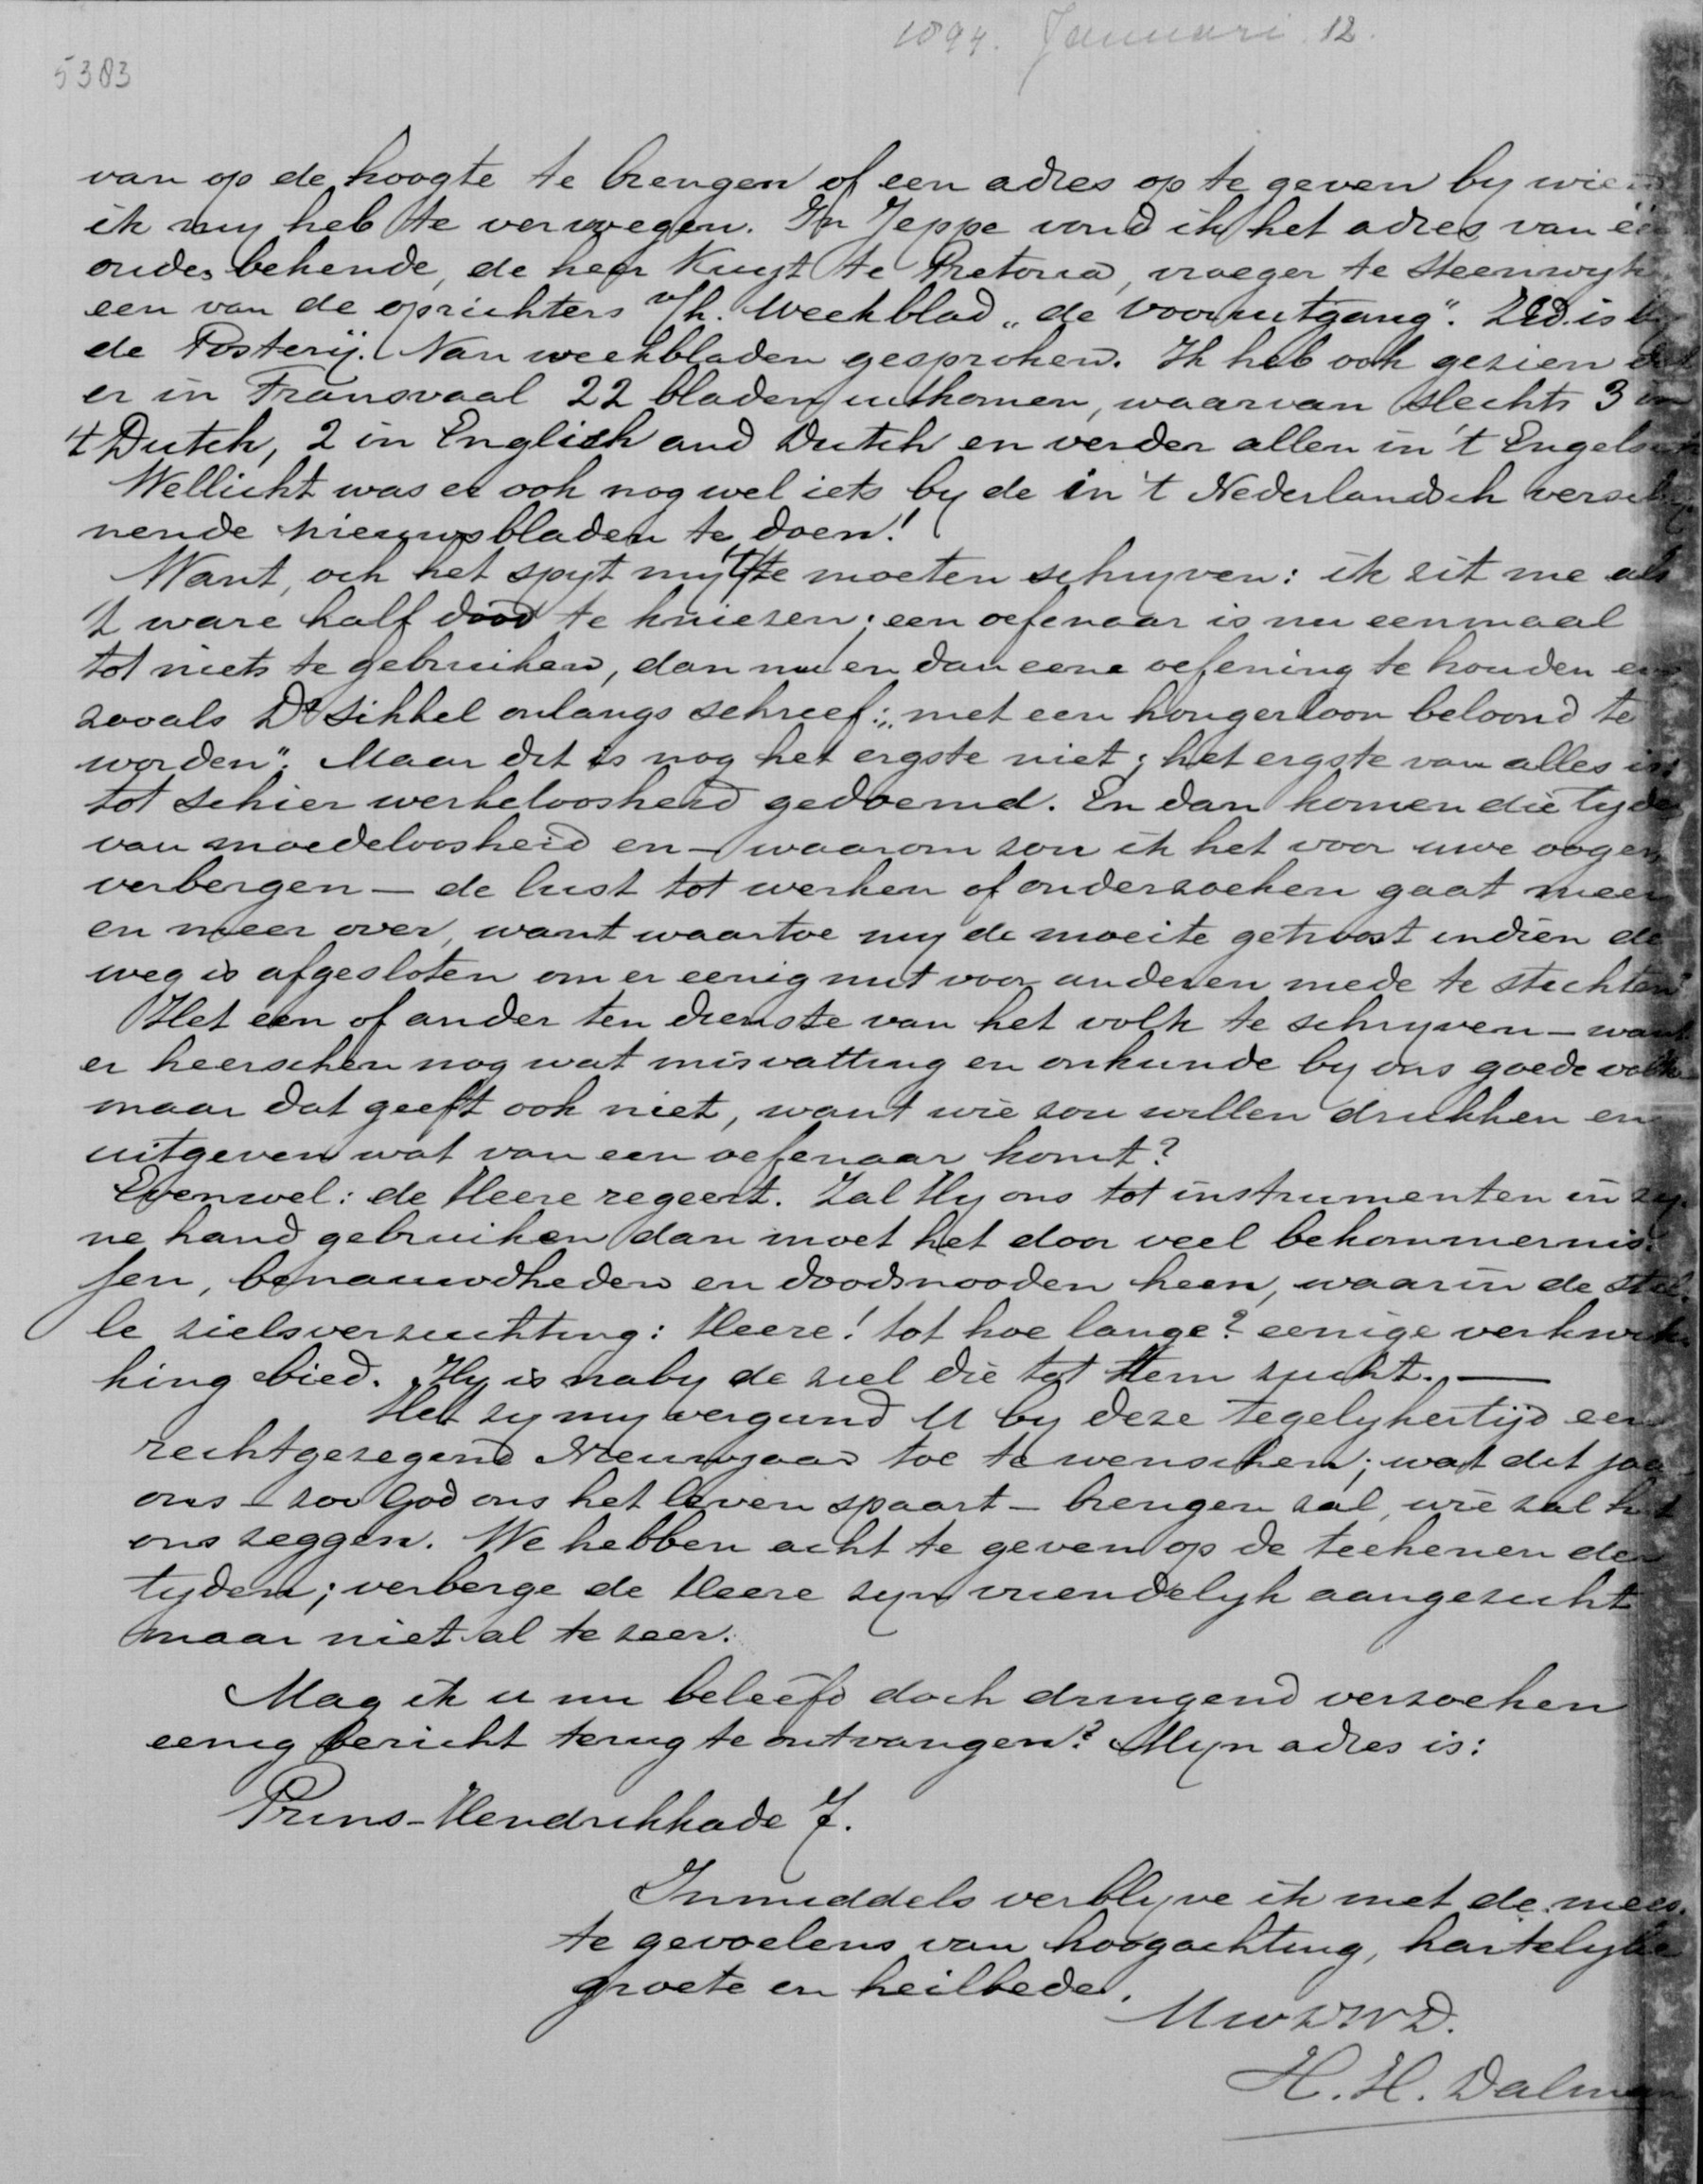 1894. Januari 12.
5383
van op de hoogte te brengen of een adres op te geven by wien
ik my heb te vervoegen. In Jeppe vond ik het adres van één
oude bekende, de heer Kuyt te Pretoria, vroeger te Steenwyk
een van de oprichters v/h. Weekblad „de Vooruitgang". ZEd. is by
de Posterij. Van weekbladen gesproken. Ik heb ook gezien dat
er in Transvaal 22 bladen uitkomen, waarvan slechts 3 in
't Dutch, 2 in English and Dutch en verder allen in 't Engelsch
Wellicht was er ook nog wel iets by de in 't Nederlandsch verschy
nende nieuwsbladen te doen!
Want, och het spyt my 't te moeten schryven: ik zit me als
't ware half dood te kniezen; een oefenaar is nu eenmaal
tot niets te gebruiken, dan nu en dan eene oefening te houden en
zooals Ds Sikkel onlangs schreef: „met een hongerloon beloond te
worden". Maar dit is nog het ergste niet; het ergste van alles is:
tot schier werkeloosheid gedoemd. En dan komen die tyden
van moedeloosheid en — waarom zou ik het voor uwe oogen
verbergen — de lust tot werken of onderzoeken gaat meer
en meer over, want waartoe my de moeite getroost indien de
weg is afgesloten om er eenig nut voor anderen mede te stichten?
Het een of ander ten dienste van het volk te schryven — want
er heerschen nog wat misvatting en onkunde by ons goede volk
maar dat geeft ook niet, want wie zou willen drukken en
uitgeven wat van een oefenaar komt?
Evenwel: de Heere regeert. Zal Hy ons tot instrumenten in zy-
ne hand gebruiken dan moet het door veel bekommernis-
sen, benauwdheden en doodsnooden heen, waarin de stil-
le zielsverzuchting: Heere! tot hoe lange? eenige verkwik-
king bied. Hy is naby de ziel die tot Hem zucht. —
Het zy my vergund U by deze tegelykertijd een
rechtgezegend Nieuwjaar toe te wenschen; wat dit jaar
ons — zoo God ons het leven spaart — brengen zal, wie zal het
ons zeggen. We hebben acht te geven op de teekenen der
tyden; verberge de Heere zyn vriendelyk aangezicht
maar niet al te zeer.
Mag ik u nu beleefd doch dringend verzoeken
eenig bericht terug te ontvangen? Myn adres is:
Prins-Hendrikkade 7.
Inmiddels verblyve ik met de mees-
te gevoelens van hoogachting, hartelyke
groete en heilbede.
UwDWD.
H. H. Dalman